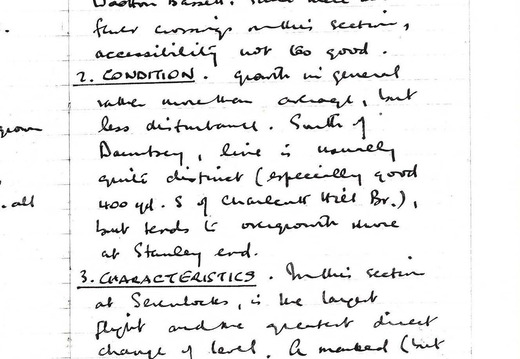 Wootton Bassett.
fewer crossings on this section,
accessibility not too good.
2. CONDITION. growth in general
rather more than average, but
less disturbance. South of
Dauntsey, line is usually
grown
quite distinct (especially good
400 yd. S of Charlcutt Hill Br.),
. all
but tends to overgrowth more
at Stanley end.
3. CHARACTERISTICS. In this section
at Sevenlocks, is the largest
flight and the greatest direct
change of level. A marked (but